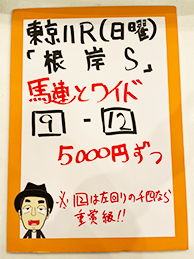 東京11R(日曜)
「根岸S」
馬連とワイド
9-12
5000円ずつ
※12は左回りの千四なら
重賞級!!